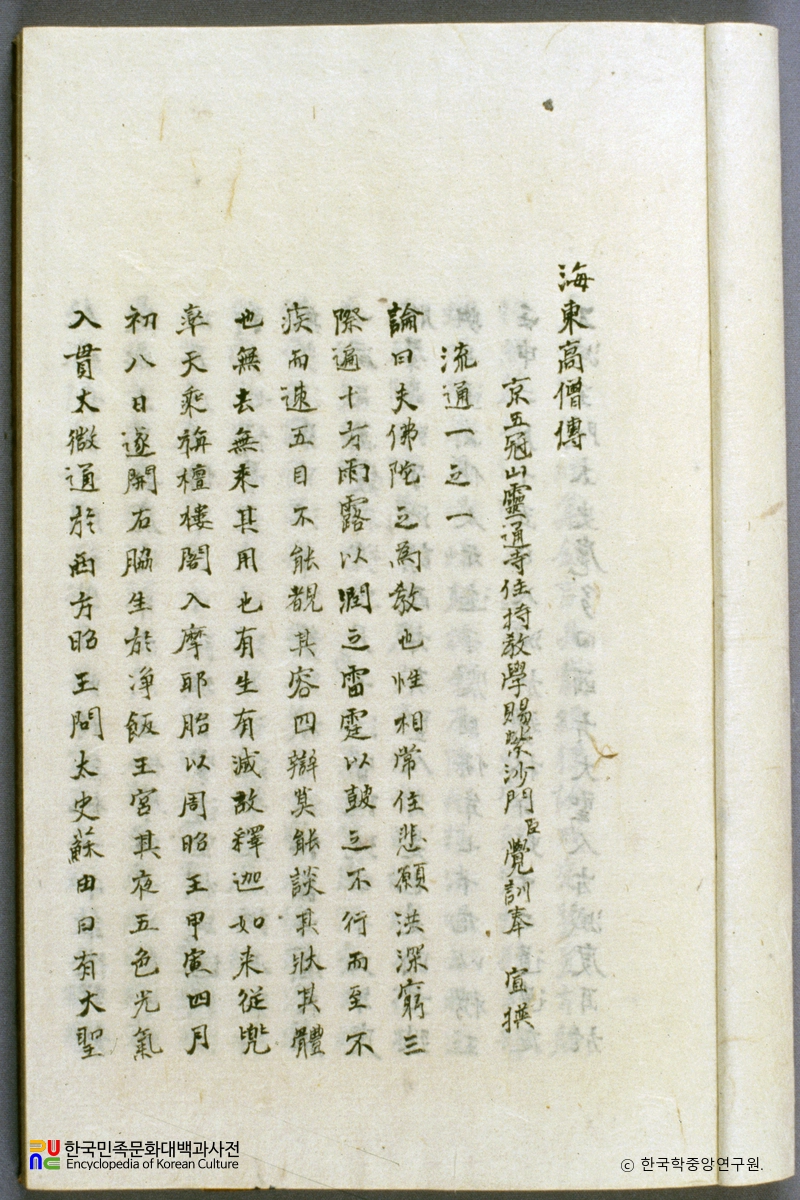 海東高僧傳
京五冠山靈通寺住持教學賜紫沙門臣覺訓奉 宣撰
流通一之一
論曰夫佛陀之爲教也性相常住悲願洪深窮三
際遍十方雨露以潤之雷霆以鼓之不行而至不
疾而速五目不能覩其容四辯莫能談其狀其體
也無去無來其用也有生有滅故釋迦如來從兜
率天乘栴檀楼閣入摩耶胎以周昭王甲寅四月
初八日遂開右脇生於淨飯王宮其夜五色光氣
入貫太微通於西方昭王問太史蘇由曰有大聖
한국민족문화대백과사전
Encyclopedia of Korean Culture
© 한국학중앙연구원.